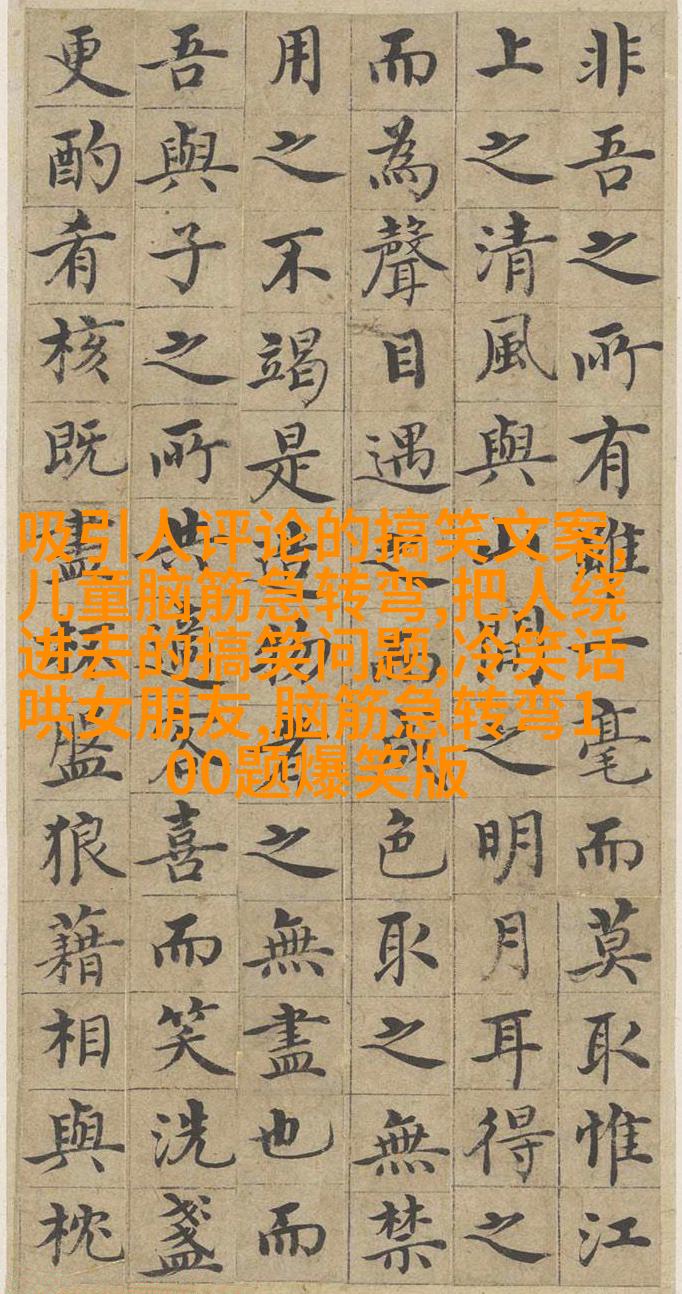 非吾之所有雖一毫而莫取惟江
上之清風與山間之明月耳得之
而為聲目遇之而成色取之無禁
用之不竭是造物者之無盡也而
吾與子之所共適客喜而笑洗盞
更酌肴核既盡杯盤狼藉相與枕
吸引人评论的搞笑文案,
儿童脑筋急转弯,把人绕
进去的搞笑问题,冷笑话
哄女朋友,脑筋急转弯1
00题爆笑版